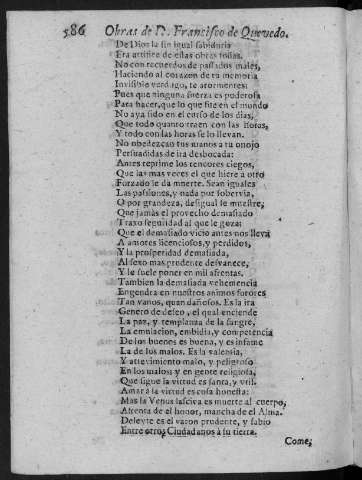 586 Obras de D. Francisco de Quevedo.
De Dios la sin igual sabiduria
Era artifice de estas obras todas.
No con recuerdos de passados males,
Haciendo al corazon de tu memoria
Invisible verdugo, te atormentes:
Pues que ninguna fuerza es poderosa
Para hacer, que lo que fue en el mundo
No aya sido en el curso de los dias,
Que todo quanto traen con las horas,
Y todo con las horas se lo llevan.
No obedezcan tus manos a tu enojo
Persuadidas de ira desbocada:
Antes reprime los rencores ciegos,
Que las mas veces el que hiere a otro
Forzado le da muerte. Sean iguales
Las passiones, y nada por sobervia,
O por grandeza, desigual se muestre,
Que jamás el provecho demasiado
Traxo seguridad al que le goza:
Que el demasiado vicio antes nos lleva
A amores licenciosos, y perdidos,
Y la prosperidad demasiada,
Al sexo mas prudente desvanece,
Y le suele poner en mil afrentas.
Tambien la demasiada vehemencia
Engendra en nuestros animos furores
Tan vanos, quan dañosos. Es la ira
Genero de deseo, el qual enciende
La paz, y templanza de la sangre.
La emulacion, embidia, y competencia
De los buenos es buena, y es infame
La de los malos. Es la valentia,
Y atrevimiento malo, y peligroso
En los malos; y en gente religiosa,
Que sigue la virtud es santa, y vtil.
Amar à la virtud es cosa honesta:
Mas la Venus lasciva es muerte al cuerpo,
Afrenta de el honor, mancha de el Alma.
Deleyte es el varon prudente, y sabio
Entre otros Ciudadanos à su tierra.
Come,